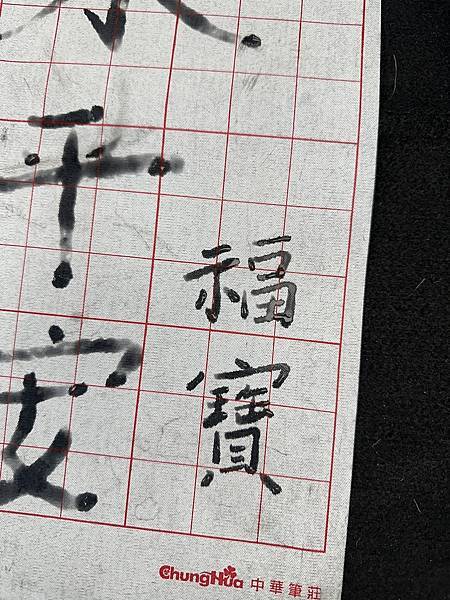 平
安
福
寶
ChungHua 中華筆莊